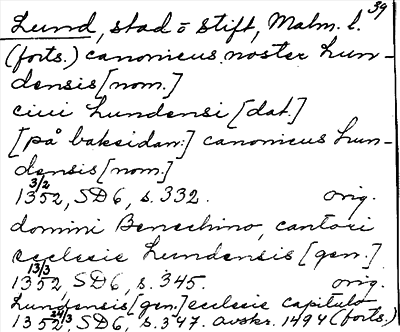 Lund, stad o stift, Malm. l. 39
(forts.) canonicus noster Lun-
densis [nom.]
ciui Lundensi [dat.]
[på baksidan:] canonicus Lun-
densis [nom.]
3/2
1352, SD 6, s. 332. orig.
domini Benechino, cantori
ecclesie Lundensis [gen.]
13/3
1352, SD 6, s. 345. orig.
Lundensis [gen.] ecclesie capitulo
24/3
1352, SD 6, s. 347. avskr. 1494 (forts.)